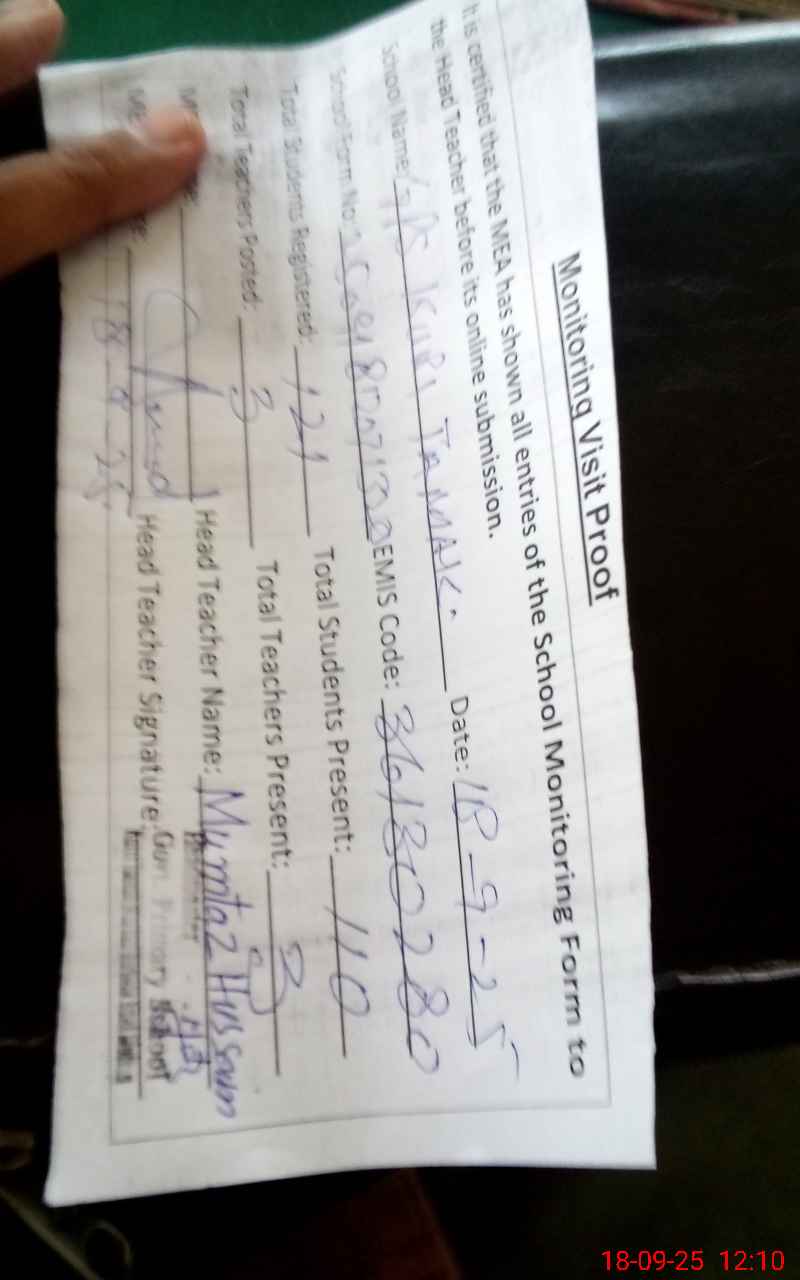 Monitoring Visit Proof
It is certified that the MEA has shown all entries of the School Monitoring Form to
the Head Teacher before its online submission.
School Name: GPS Date: 18-9-25
School Form No: EMIS Code: 36130280
Total Students Registered: 121 Total Students Present: 110
Total Teachers Posted: 3 Total Teachers Present: 3
Head Teacher Name: Mumtaz Hussain
18-9-25 Head Teacher Signature:
Govt. Primary School
18-09-25 12:10